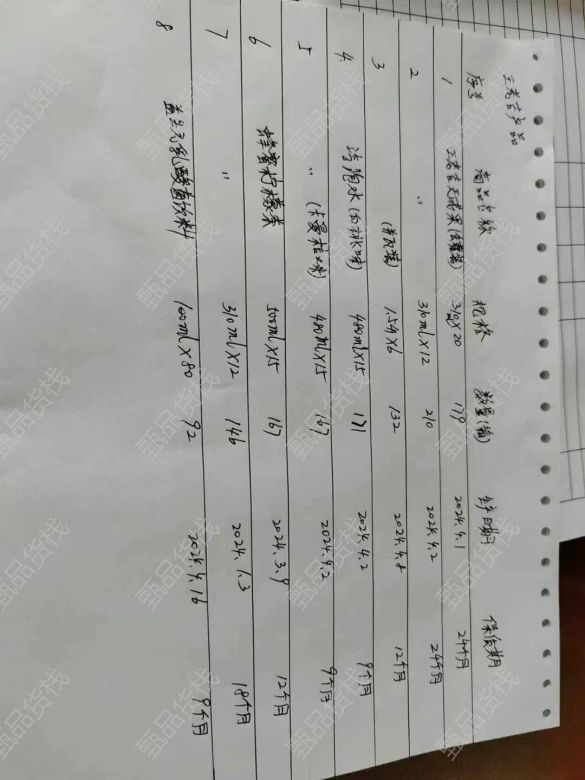 王老吉产品
序号 商品名称 规格 数量(箱) 生产日期 保质期
1 王老吉 310ml×20 179 2024.4.1 24个月
2 〃 310ml×12 210 2024.4.2 24个月
3 (瓶装) 1.5L×6 132 2024.4.8 12个月
4 汽泡水(白桃味) 480ml×15 171 2024.4.2 9个月
5 〃 (卡曼桔味) 480ml×15 167 2024.4.2 9个月
6 蜂蜜柠檬茶 500ml×15 167 2024.3.9 12个月
7 〃 310ml×12 146 2024.1.3 18个月
8 益生元乳酸菌饮料 100ml×80 92 2024.4.16 9个月
甄品货栈